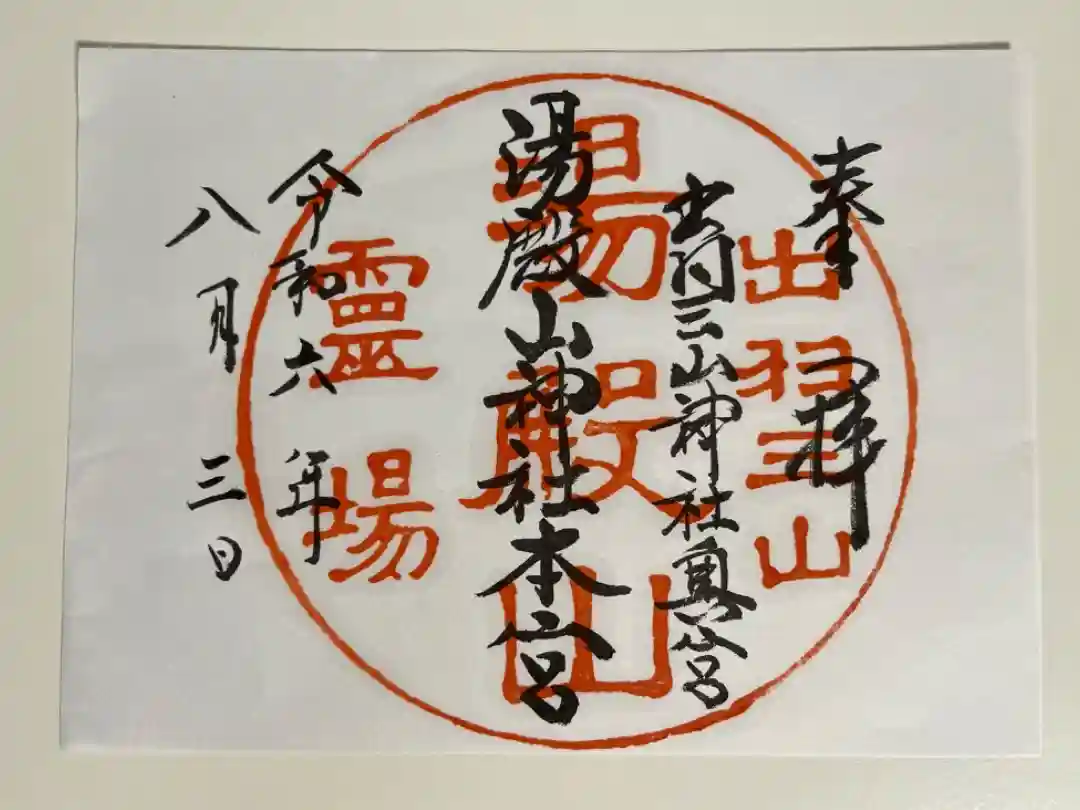 奉拝
出羽三山神社奥宮
湯殿山神社本宮
令和六年
八月三日
出羽三山
湯殿山
靈場